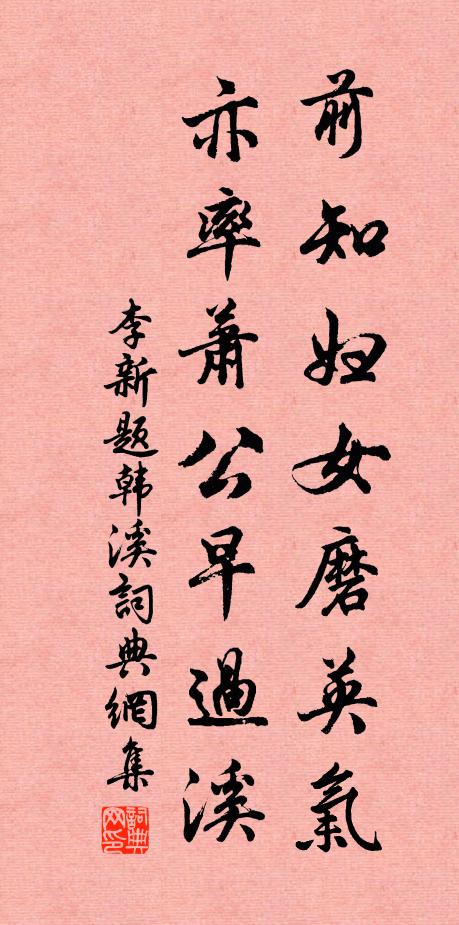 前知妇女磨英氣
亦率蕭公早過溪
李新题韩溪詞典網集
詞典网印